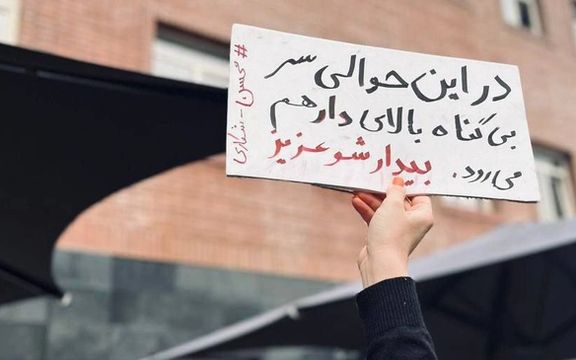 در این حوالی سر
بی گناه بالای دار هم
می رود. بیدار شو عزیز
#محسن-شکاری